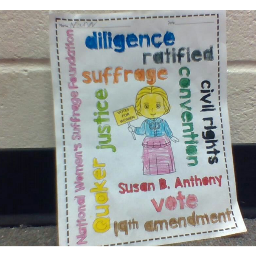 diligence
ratified
suffrage
National Women's Suffrage Foundation
Quaker
justice
convention
civil rights
Susan B. Anthony
vote
19th amendment